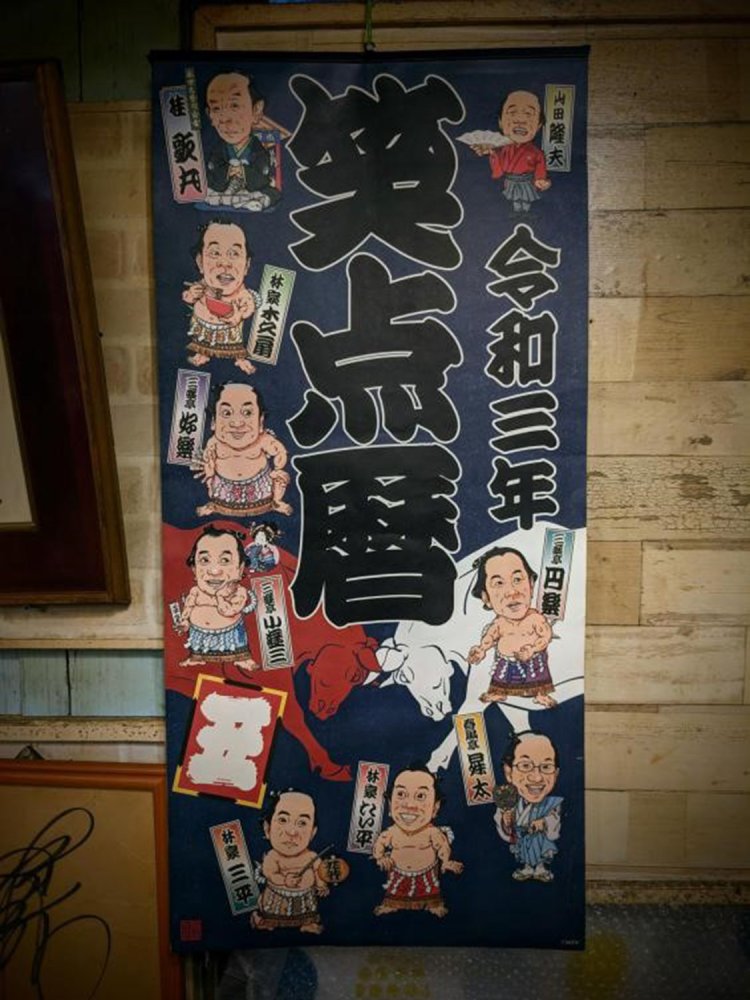 笑点暦
令和三年
山田隆夫
桂 歌丸
林家 木久扇
三遊亭 好楽
三遊亭 小遊三
三遊亭 円楽
春風亭 昇太
林家 たい平
林家 三平
丑